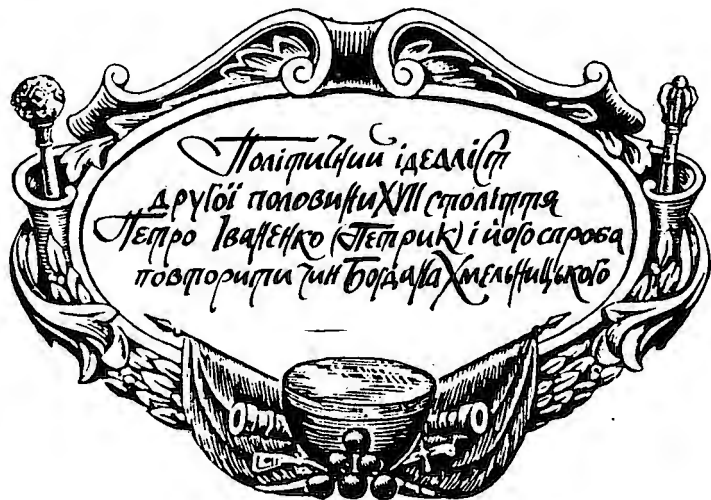 Політичний ідеаліст
другої половини XVII століття
Петро Іваненко (Петрик) і його спроба
повторити чин Богдана Хмельницького